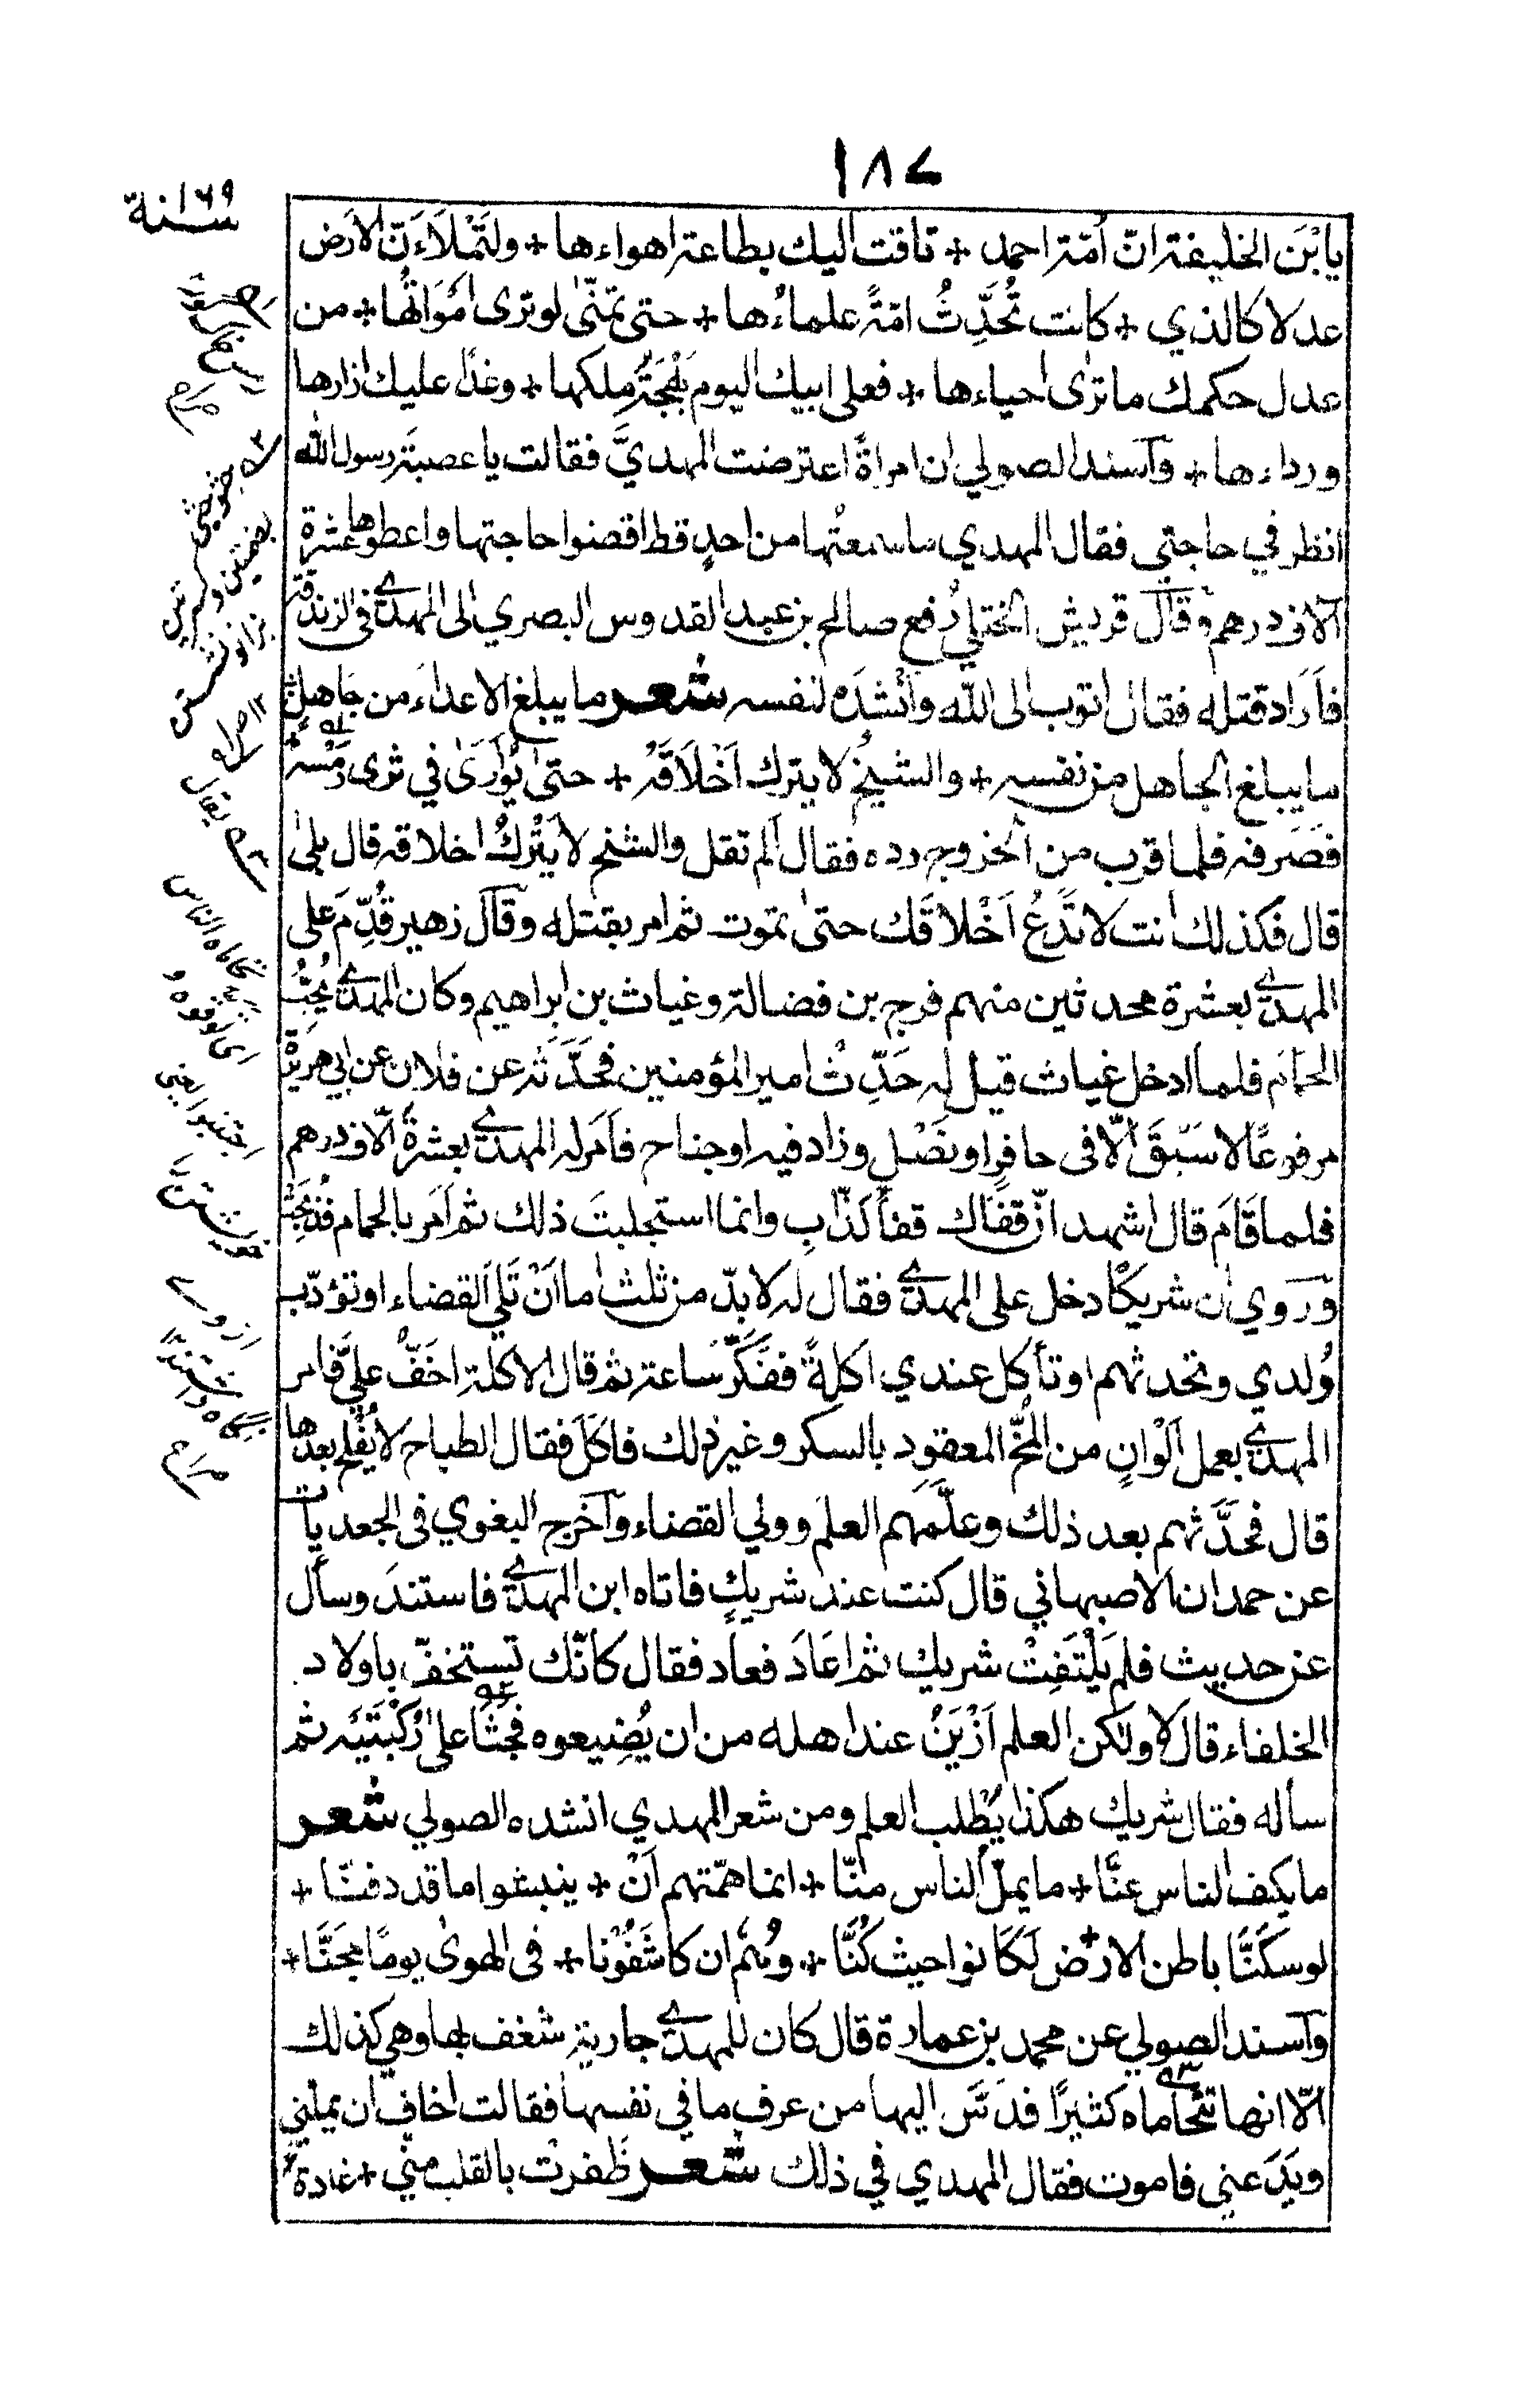 ١٨٧
سنة ١٦٩
يابْنَ الخليفة انّ اُمّة احمد + تاقت اليك بطاعة اهواءها + ولتَمْلَاَءَنّ الارض
عدلا كالذي + كانت تُحَدِّثُ امّةً علماءُها + حتى تمنّى لو ترى امْوَاتُها + من
عدل حكمك ما ترى احياءها + فعلى ابيك اليوم بَهْجَةُ ملكها + وغدا عليك ازارها
ورداءها + وآسند الصولي ان امراةً اعترضت المهديَّ فقالت يا عصبة رسول الله
انظر في حاجتي فقال المهدي ما سمعتُها من احدٍ قط اقضوا حاجتها واعطوها عشرة
آلاف درهم وقال قريش الختلي رُفع صالح بن عبد القدوس البصري الى المهدي في الزندقة
فاَرَاد قتله فقال اتوب الى الله وأنْشَدَه لنفسه شعر ما يبلغ الاعداءَ من جَاهلٍ
ما يبلغ الجاهل من نفسه + والشيخُ لا يترك اَخْلَاقَه + حتى يُوَارَى في ثرى رَمْسِه
فصَرفه فلما قرب من الخروج رده فقال الم تقل والشيخ لا يَتْركُ اخلاقه قال بلى
قال فكذلك انت لا تَدَعُ اَخْلاقَك حتى تموت ثم امر بقتله وقال زهير قُدِّمَ على
المهدي بعشرة محدثين منهم فرج بن فضالة وغياث بن ابراهيم وكان المهدي يُحِبُّ
الحمام فلما ادخل غياث قيل له حَدِّثْ امير المؤمنين فحَدَّثَه عن فلان عن ابي هريرة
مرفوعًا لا سَبَقَ الّا في حافرٍ او نَصْلٍ وزاد فيه او جناح فاَمَر له المهدي بعشرة آلاف درهم
فلما قَامَ قال اشهد انّ قفاك قفا كذّابٍ وانما استجلبتَ ذلك ثم اَمَر بالحمام فذُبِحَتْ
ورَوي ان شريكًا دخل على المهدي فقال له لا بدّ من ثلث اما اَنْ تَلي القضاء او تؤدّب
وُلدي وتحدثهم او تأكل عندي اكلةً ففَكَّر ساعة ثم قال الاكلة اخَفُّ عليَّ فامر
المهدي بعمل اَلْوانٍ من المُخّ المعقود بالسكر وغير ذلك فاكَلَ فقال الطباخ لا يُفْلح بعدها
قال فحَدَّثهم بعد ذلك وعلَّمَهم العلم وولي القضاء وآخرج البغوي في الجعديات
عن حمدان الاصبهاني قال كنت عند شريكٍ فاتاه ابن المهدي فاستندَ وسأل
عن حديث فلم يَلْتَفِتْ شريك ثم اعَادَ فعاد فقال كانّك تستخفّ باولاد
الخلفاء قال لا ولكن العلم اَزْيَنُ عند اهله من ان يُضِيعوه فجَثَا على رُكْبَتَيْه ثم
سأله فقال شريك هكذا يُطْلب العلم ومن شعر المهدي انشده الصولي شعر
ما يكف الناس عنّا + ما يملّ الناس منّا + انما همّتهم اَنْ + ينبشوا ما قد دفنّا +
لو سكنَّا باطن الارض لكَانوا حيث كُنَّا + وهُم ان كاشَفُوْنا + في الهوى يومًا مجَنَّا +
وآسند الصولي عن محمد بن عمارة قال كان للمهدي جارية شغف بها وهي كذلك
الّا انها تتحاماه كثيرًا فدَسَّ اليها من عرف ما في نفسها فقالت اخاف ان يملّني
ويَدَعني فاموت فقال المهدي في ذلك شعر ظَفرتْ بالقلب مني + غادة